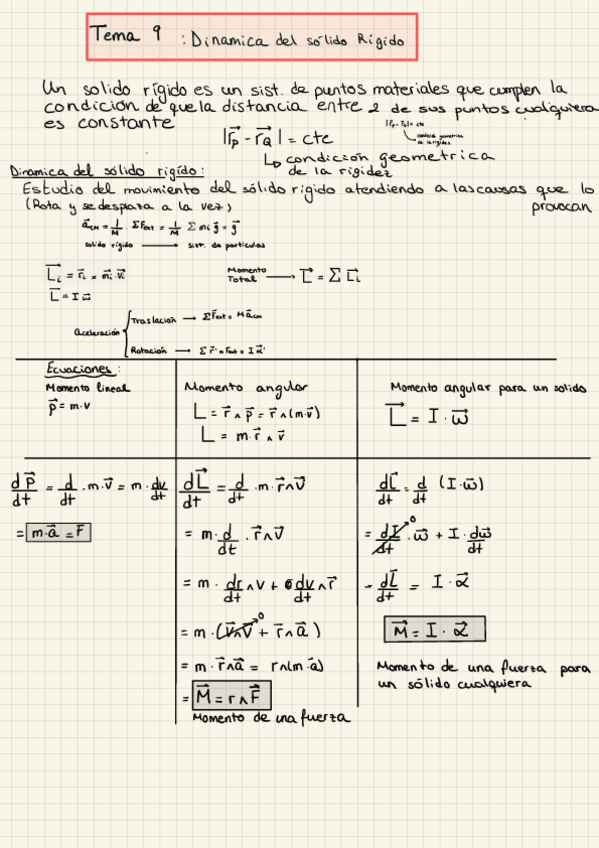 Tema 9 : Dinamica del sólido Rígido
Un solido rígido es un sist. de puntos materiales que cumplen la
condición de que la distancia entre 2 de sus puntos cualquiera
es constante
|r⃗p - r⃗Q| = cte
↳ condición geometrica
de la rigidez
|r⃗p - r⃗Q| = cte
condición geometrica
de la rigidez
Dinamica del sólido rigído :
Estudio del movimiento del sólido rigido atendiendo a las causas que lo
(Rota y se desplaza a la vez) provocan
a⃗CM = 1/M · ΣF⃗ext = 1/M Σ mi g⃗ = g⃗
solido rigido → sist. de particulas
L⃗i = r⃗i × m⃗i · v⃗i
L⃗ = I ω⃗
Momento
Total → L⃗ = Σ L⃗i
Aceleración
Traslación → ΣF⃗ext = M a⃗CM
Rotación → Σ r⃗ × F⃗ext = I α⃗
Ecuaciones :
Momento lineal
p⃗ = m · v
Momento angular
L = r⃗ ∧ p⃗ = r⃗ ∧ (m · v⃗)
L = m · r⃗ ∧ v⃗
Momento angular para un solido
L⃗ = I · ω⃗
dP⃗/dt = d/dt · m · v⃗ = m · dv/dt
= m · a⃗ = F
dL⃗/dt = d/dt · m · r⃗ ∧ v⃗
= m · d/dt · r⃗ ∧ v⃗
= m · dr/dt ∧ v + dv/dt ∧ r⃗
= m · (v⃗ ∧ v⃗ 0 + r⃗ ∧ a⃗)
= m · r⃗ ∧ a⃗ = r ∧ (m · a⃗)
= M⃗ = r ∧ F⃗
Momento de una fuerza
dL⃗/dt = d/dt (I · ω⃗)
= dI/dt 0 · ω⃗ + I · dω⃗/dt
= dL⃗/dt = I · α⃗
M⃗ = I · α⃗
Momento de una fuerza para
un sólido cualquiera